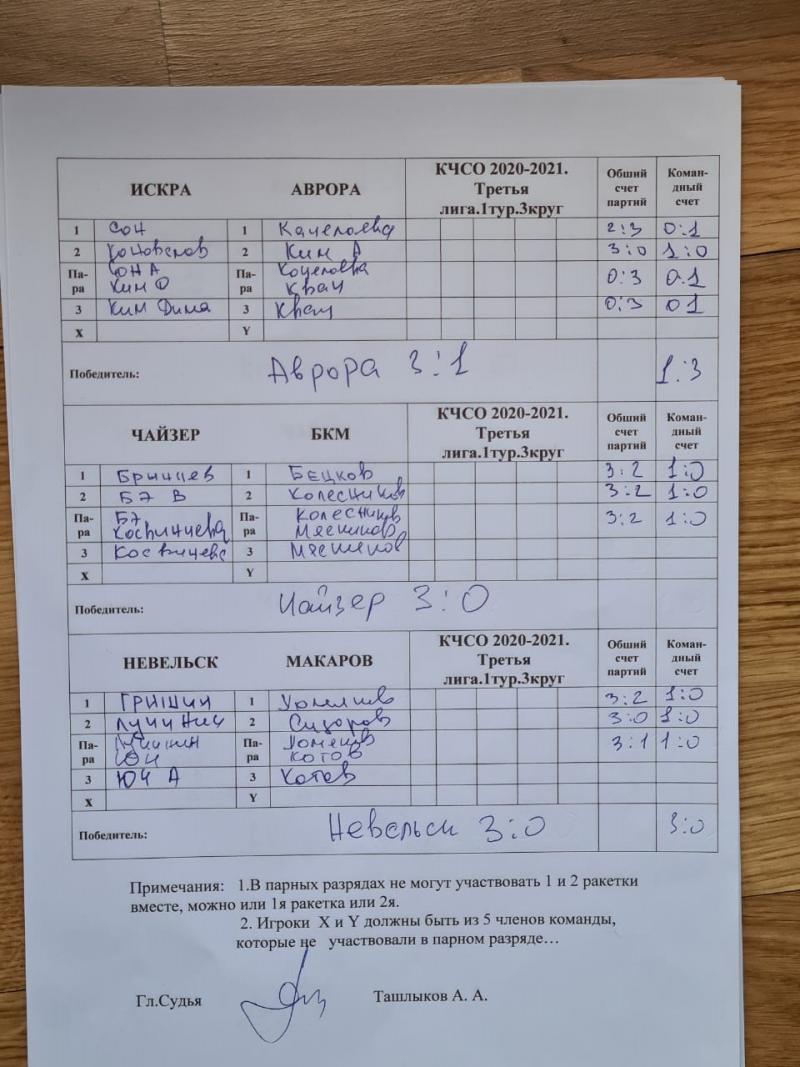 ИСКРА АВРОРА КЧСО 2020-2021. Третья лига.1тур.3круг Обший счет партий Коман-дный счет
1 СОН 1 2:3 0:1
2 2 Ким А 3:0 1:0
Па-ра СОН А Па-ра 0:3 0:1
Ким Д Крач
3 Ким Дима 3 Крач 0:3 01
X Y
Победитель: Аврора 3:1 1:3
ЧАЙЗЕР БКМ КЧСО 2020-2021. Третья лига.1тур.3круг Обший счет партий Коман-дный счет
1 Бринцев 1 Бецков 3:2 1:0
2 БЭ В 2 Колесников 3:2 1:0
Па-ра БЭ Па-ра Колесников 3:2 1:0
Косвинцева Мясников
3 Косвинцева 3 Мясников
X Y
Победитель: Чайзер 3:0
НЕВЕЛЬСК МАКАРОВ КЧСО 2020-2021. Третья лига.1тур.3круг Обший счет партий Коман-дный счет
1 ГРИШИН 1 3:2 1:0
2 Лучинин 2 Сидоров 3:0 1:0
Па-ра Лучинин Па-ра 3:1 1:0
ЮН КОТОВ
3 ЮН А 3 Котов
X Y
Победитель: Невельск 3:0 3:0
Примечания: 1.В парных разрядах не могут участвовать 1 и 2 ракетки
вместе, можно или 1я ракетка или 2я.
2. Игроки X и Y должны быть из 5 членов команды,
которые не участвовали в парном разряде…
Гл.Судья Ташлыков А. А.